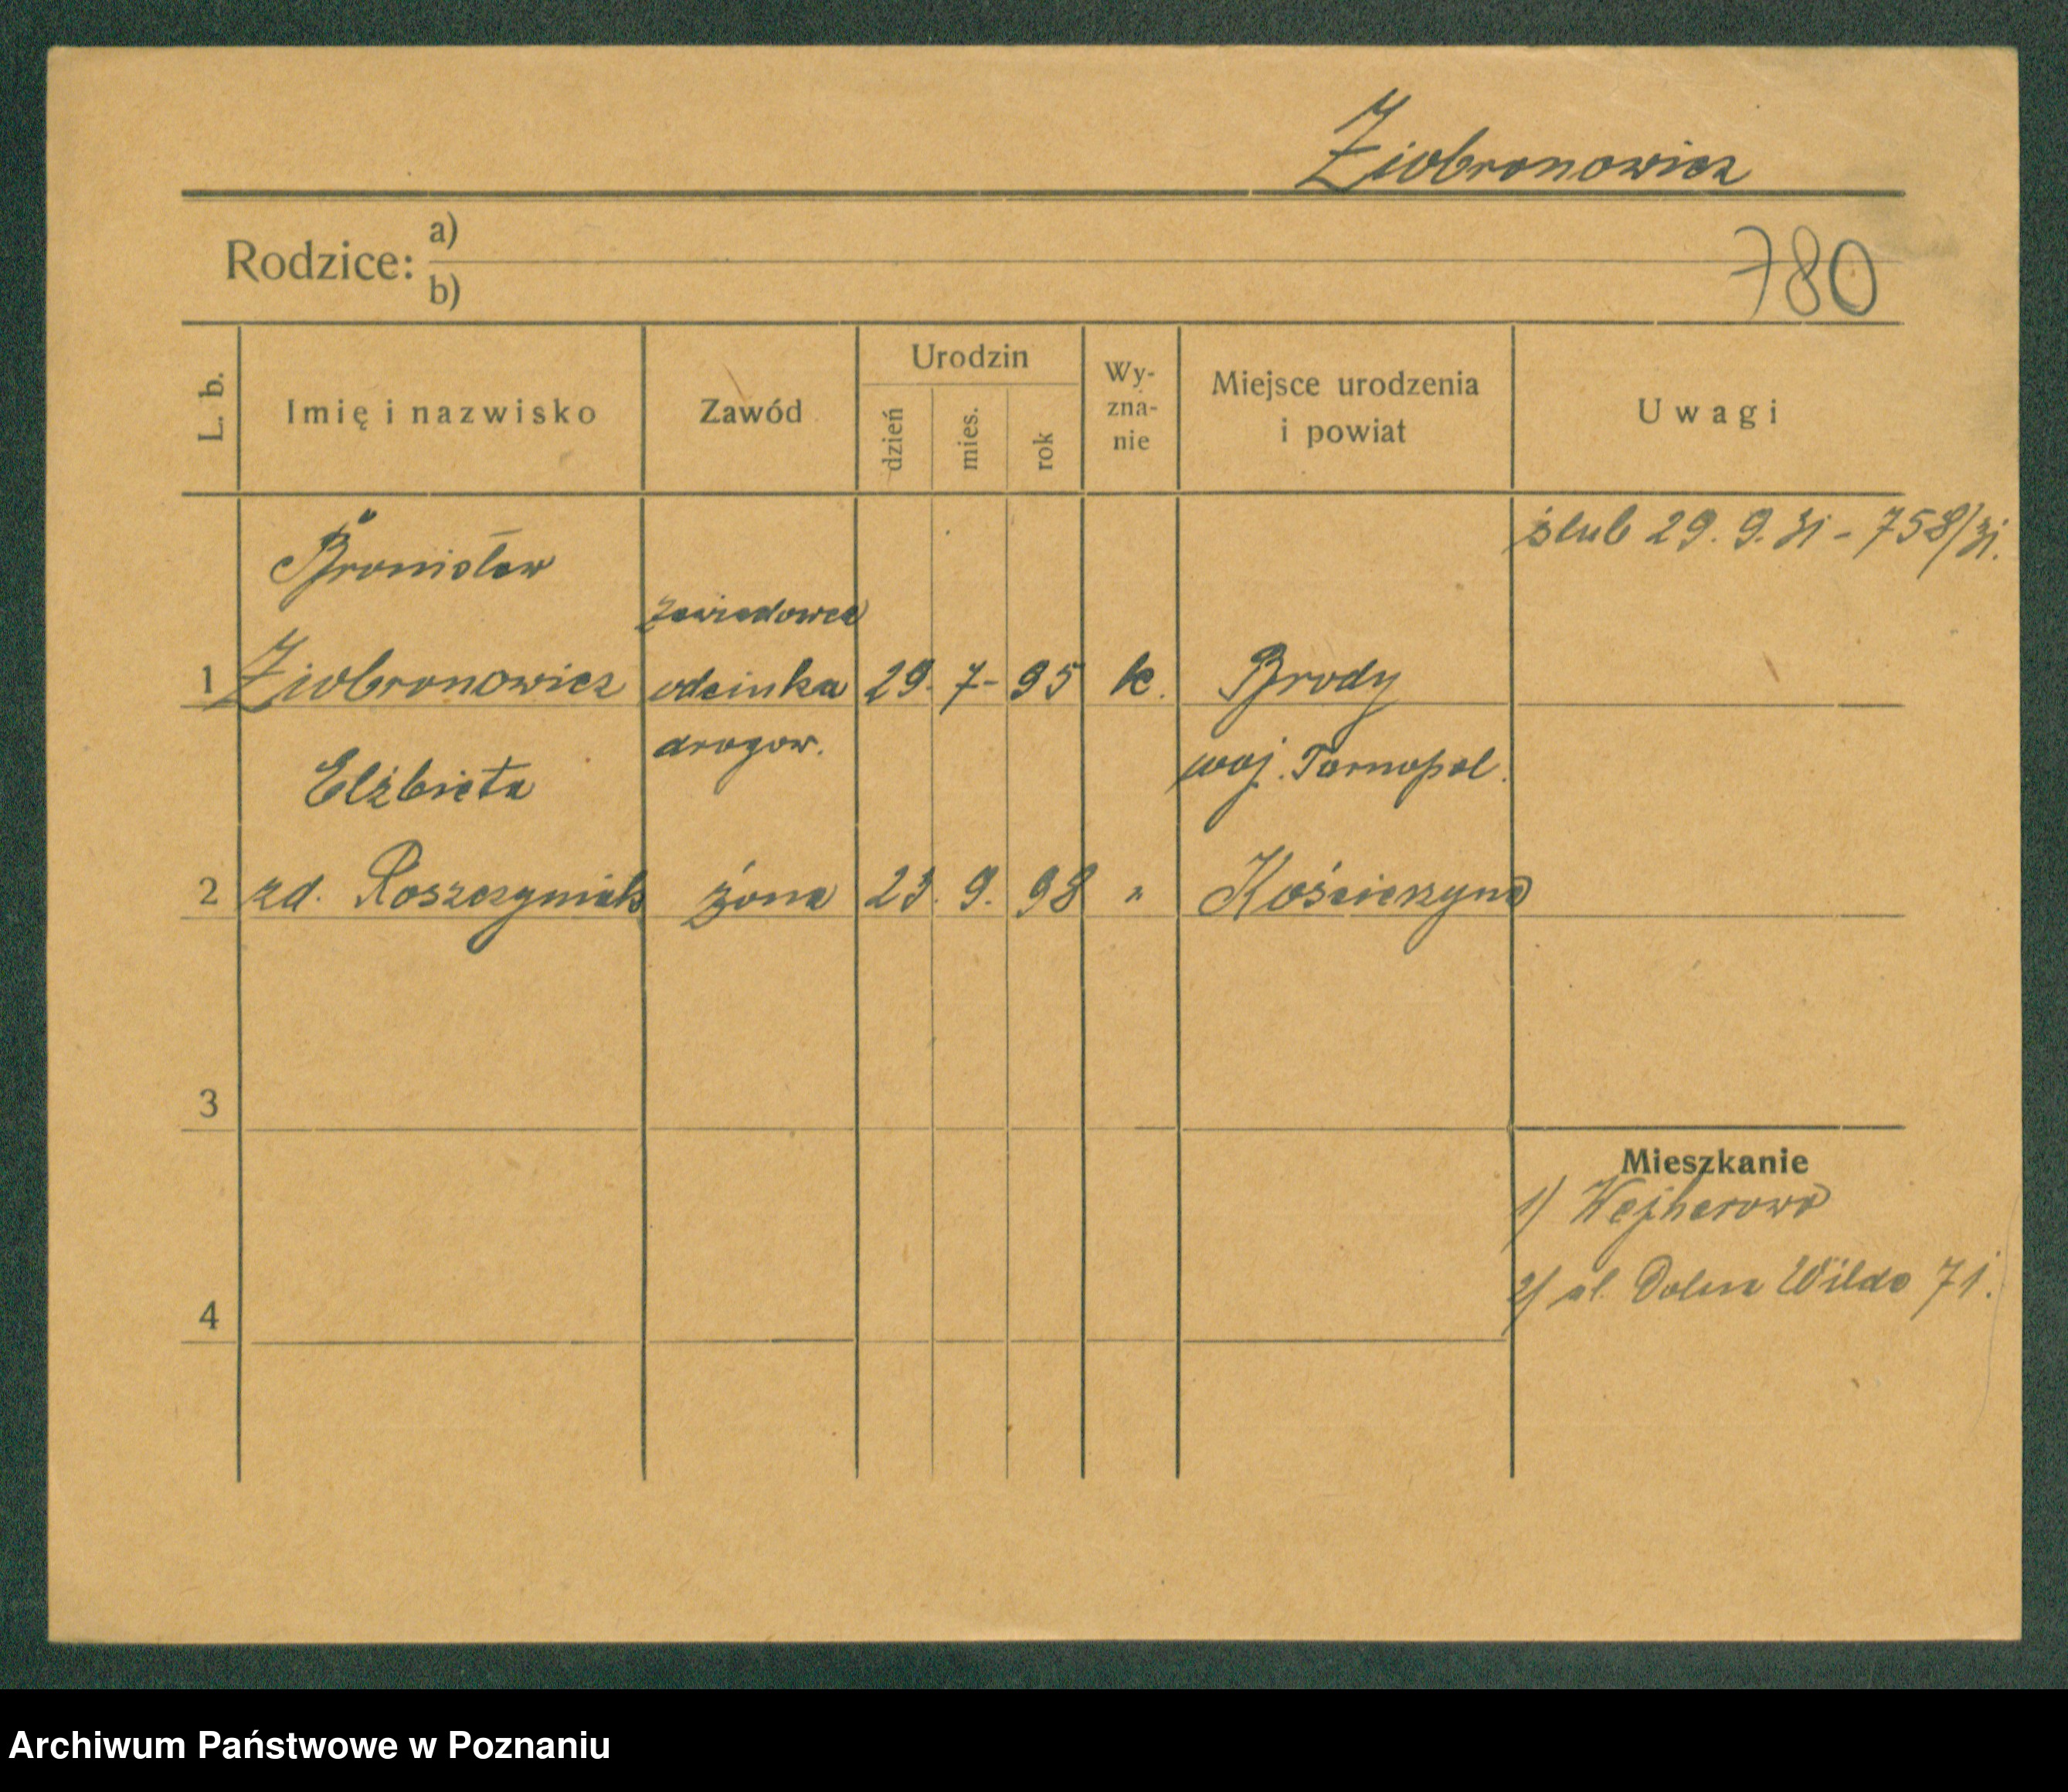 Ziobronowicz
Rodzice: a)
b)
780
L. b.
Imię i nazwisko
Zawód
Urodzin
dzień
mies.
rok
Wy-
zna-
nie
Miejsce urodzenia
i powiat
Uwagi
ślub 29. 9. 31 - 758/31.
Bronisław
zawiadowca
1 Ziobronowicz odcinka 29. 7- 95 k. Brody
drogow.
woj. Tarnopol.
Elżbieta
2 zd. Roszczyniak żona 23. 9. 98 " Kościerzyna
3
Mieszkanie
1) Wejherowo
2) ul. Dolna Wilda 71.
4
Archiwum Państwowe w Poznaniu